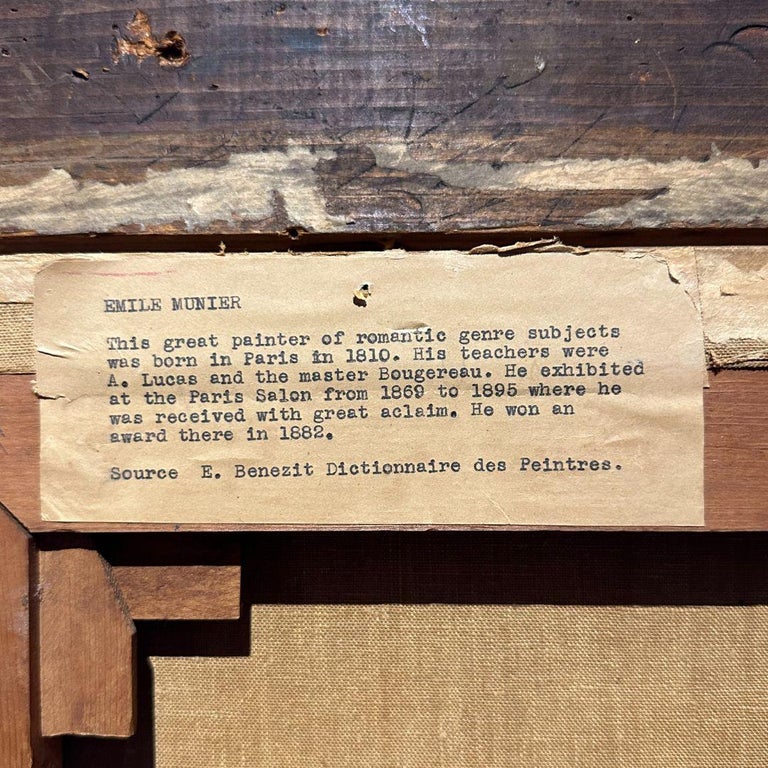 EMILE MUNIER
This great painter of romantic genre subjects
was born in Paris in 1810. His teachers were
A. Lucas and the master Bougereau. He exhibited
at the Paris Salon from 1869 to 1895 where he
was received with great aclaim. He won an
award there in 1882.
Source E. Benezit Dictionnaire des Peintres.